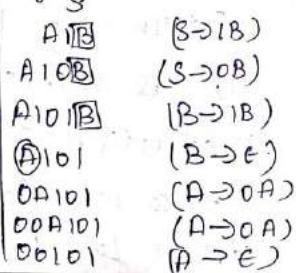 A1B (S→1B)
A10B (S→0B)
A101B (B→1B)
A101 (B→ε)
0A101 (A→0A)
00A101 (A→0A)
00101 (A→ε)